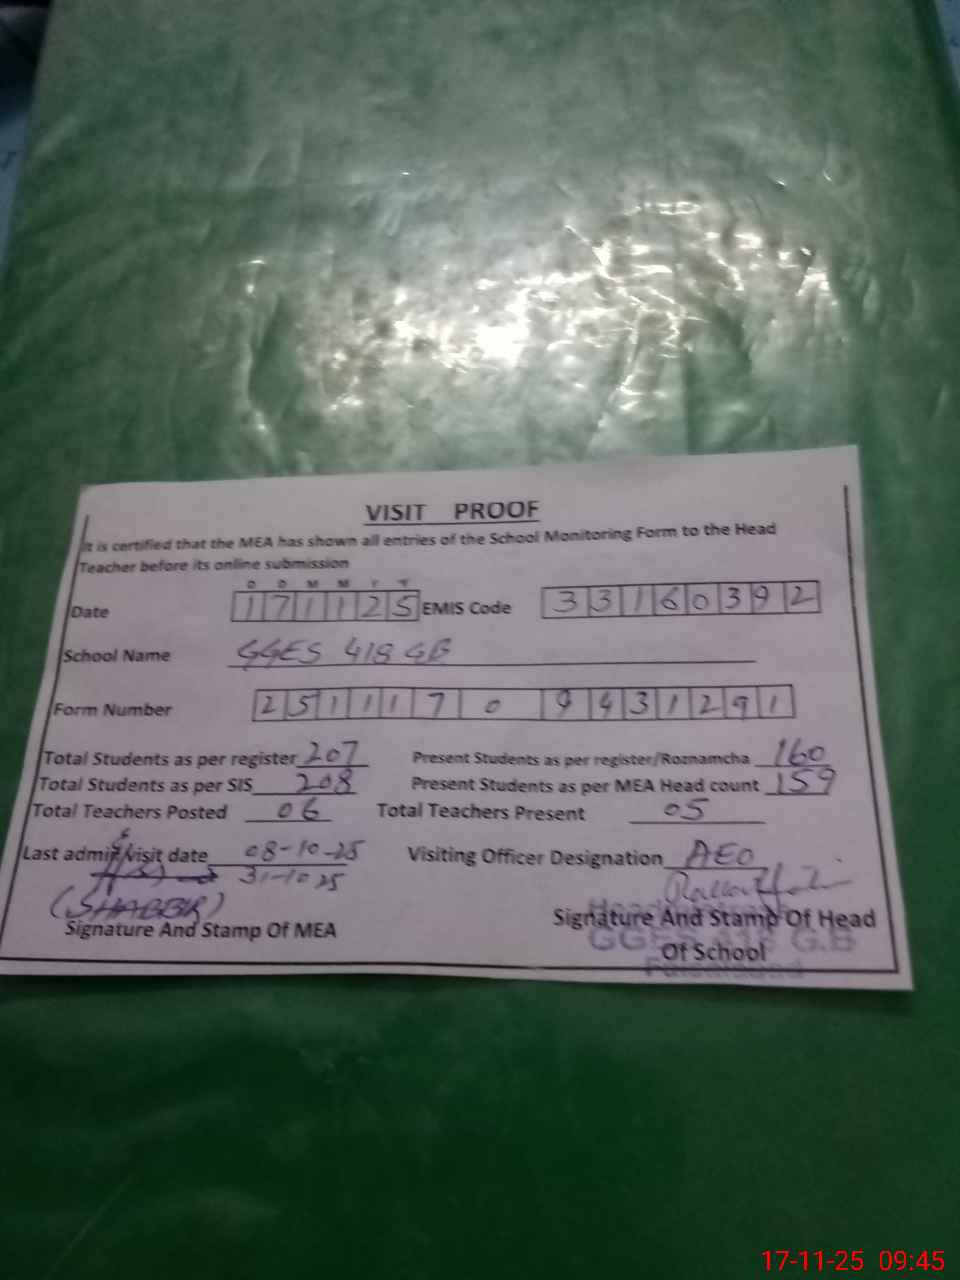 VISIT PROOF
It is certified that the MEA has shown all entries of the School Monitoring Form to the Head
Teacher before its online submission
D D M M Y Y
Date 171125 EMIS Code 33160392
School Name GGES 418 GB
Form Number 25111709431291
Total Students as per register 207 Present Students as per register/Roznamcha 160
Total Students as per SIS 208 Present Students as per MEA Head count 159
Total Teachers Posted 06 Total Teachers Present 05
Last admin visit date 08-10-25 Visiting Officer Designation AEO
31-10 25
(SHABBIR)
Signature And Stamp Of MEA Signature And Stamp Of Head
Of School
GGES 418 G.B
17-11-25 09:45